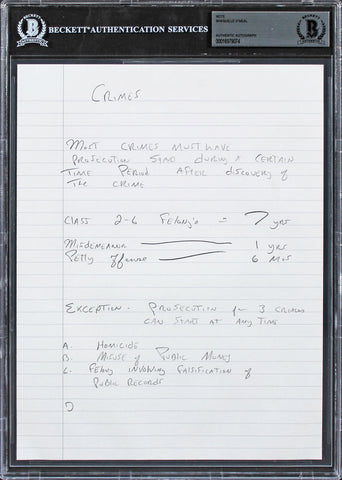 BECKETT AUTHENTICATION SERVICES
NOTE
SHAQUILLE O'NEAL
AUTHENTIC AUTOGRAPH
00016979074
CRIMES
MOST CRIMES MUST HAVE
PROSECUTION START DURING A CERTAIN
TIME PERIOD AFTER discovery of
THE CRIME
CLASS 2-6 Felony's = 7 yrs
Misdemeanor 1 yrs
Petty offense 6 Mos
EXCEPTION - PROSECUTION for 3 CRIMES
CAN START AT ANY TIME
A. HOMICIDE
B. MISUSE of PUBLIC MONEY
C. FELONY INVOLVING FALSIFICATION of
PUBLIC RECORDS
D